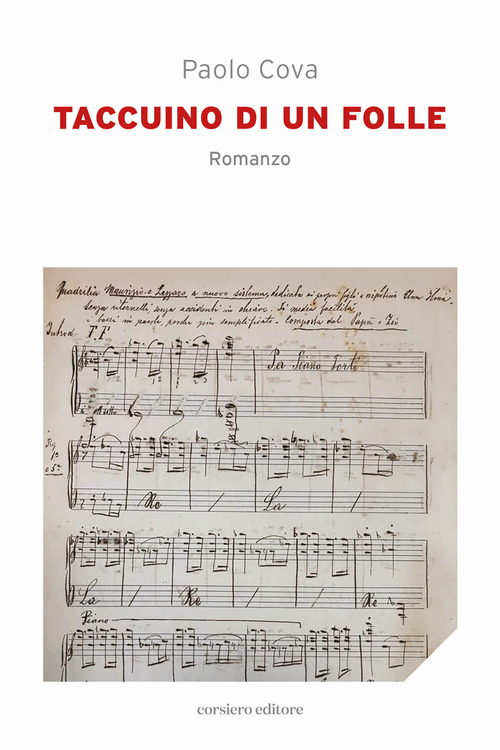 Paolo Cova
TACCUINO DI UN FOLLE
Romanzo
Quadrilia Maurizio e Lazzaro a nuovo sistema, dedicata ai propri figli e nipotina
senza ritornelli, senza accidenti in chiave. Di media facilità,
bassi in parole, perché più semplificato. Composta dal Papà e Zio
Introd. FF
Per Piano Forte
1 2 2 3
Re / La /
La / Re / La / Re
Piano
corsiero editore